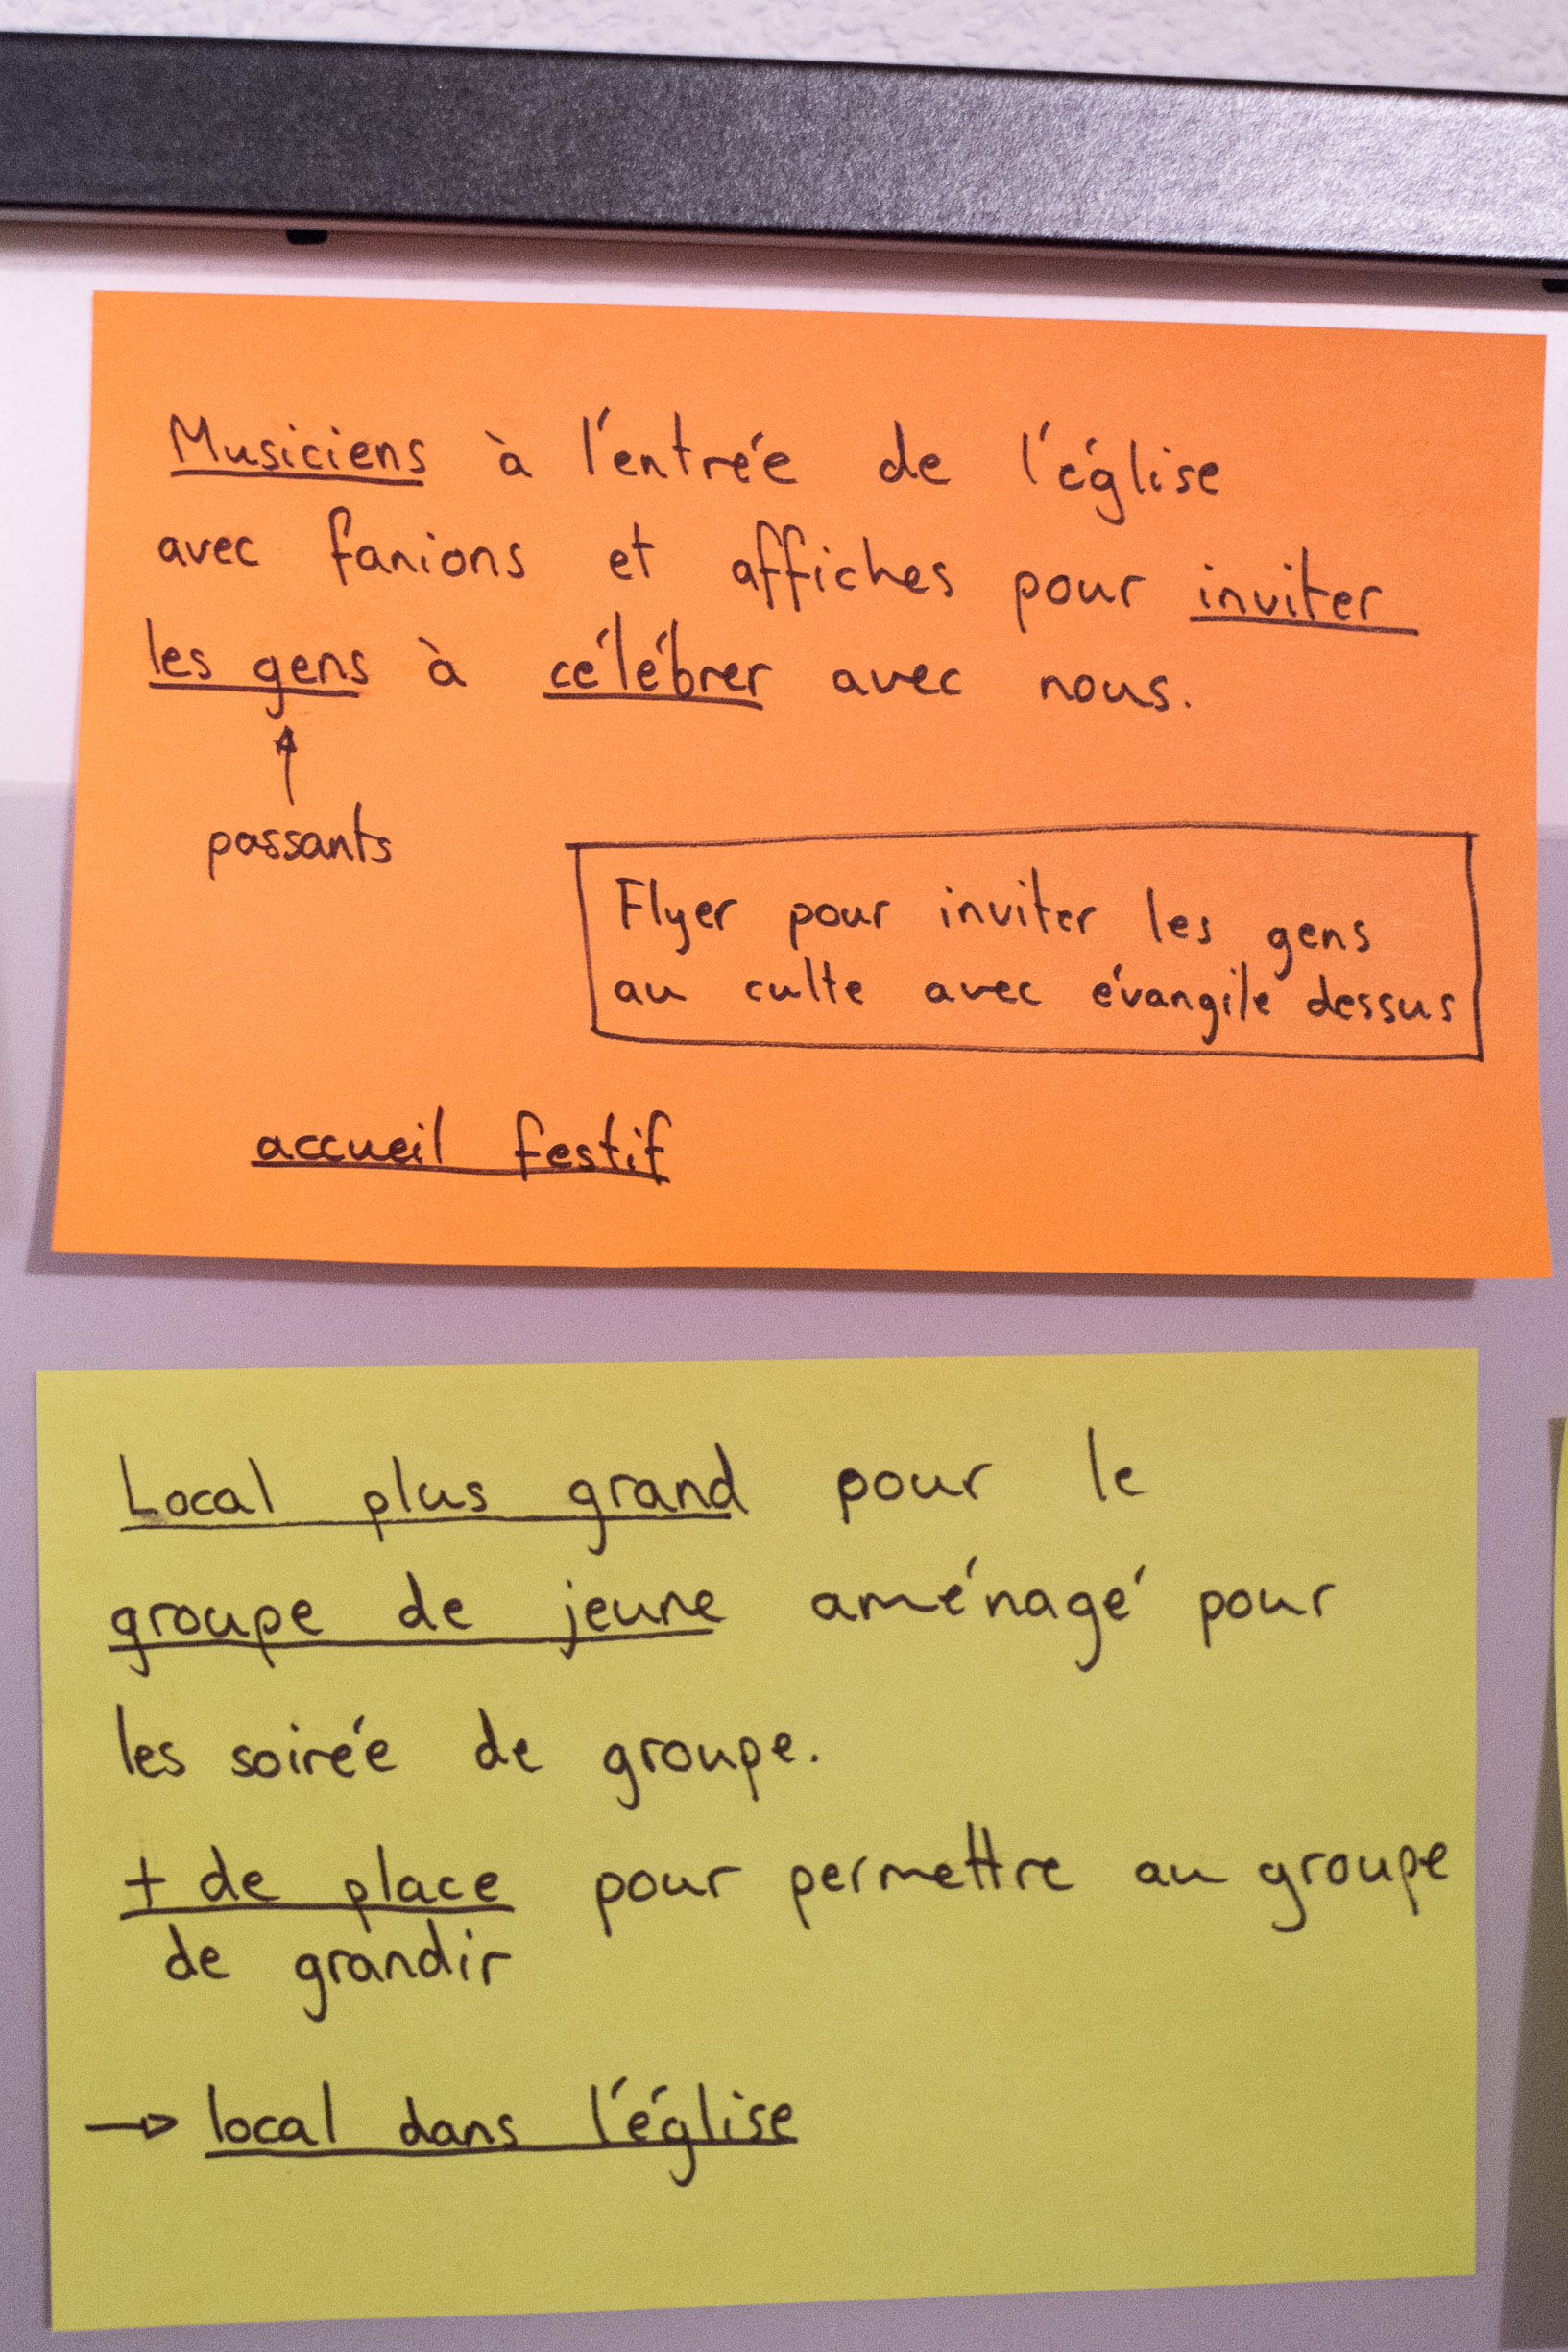 Musiciens à l'entrée de l'église
avec fanions et affiches pour inviter
les gens à célébrer avec nous.
↑
passants
Flyer pour inviter les gens
au culte avec évangile dessus
accueil festif
Local plus grand pour le
groupe de jeune aménagé pour
les soirée de groupe.
+ de place pour permettre au groupe
de grandir
→ local dans l'église